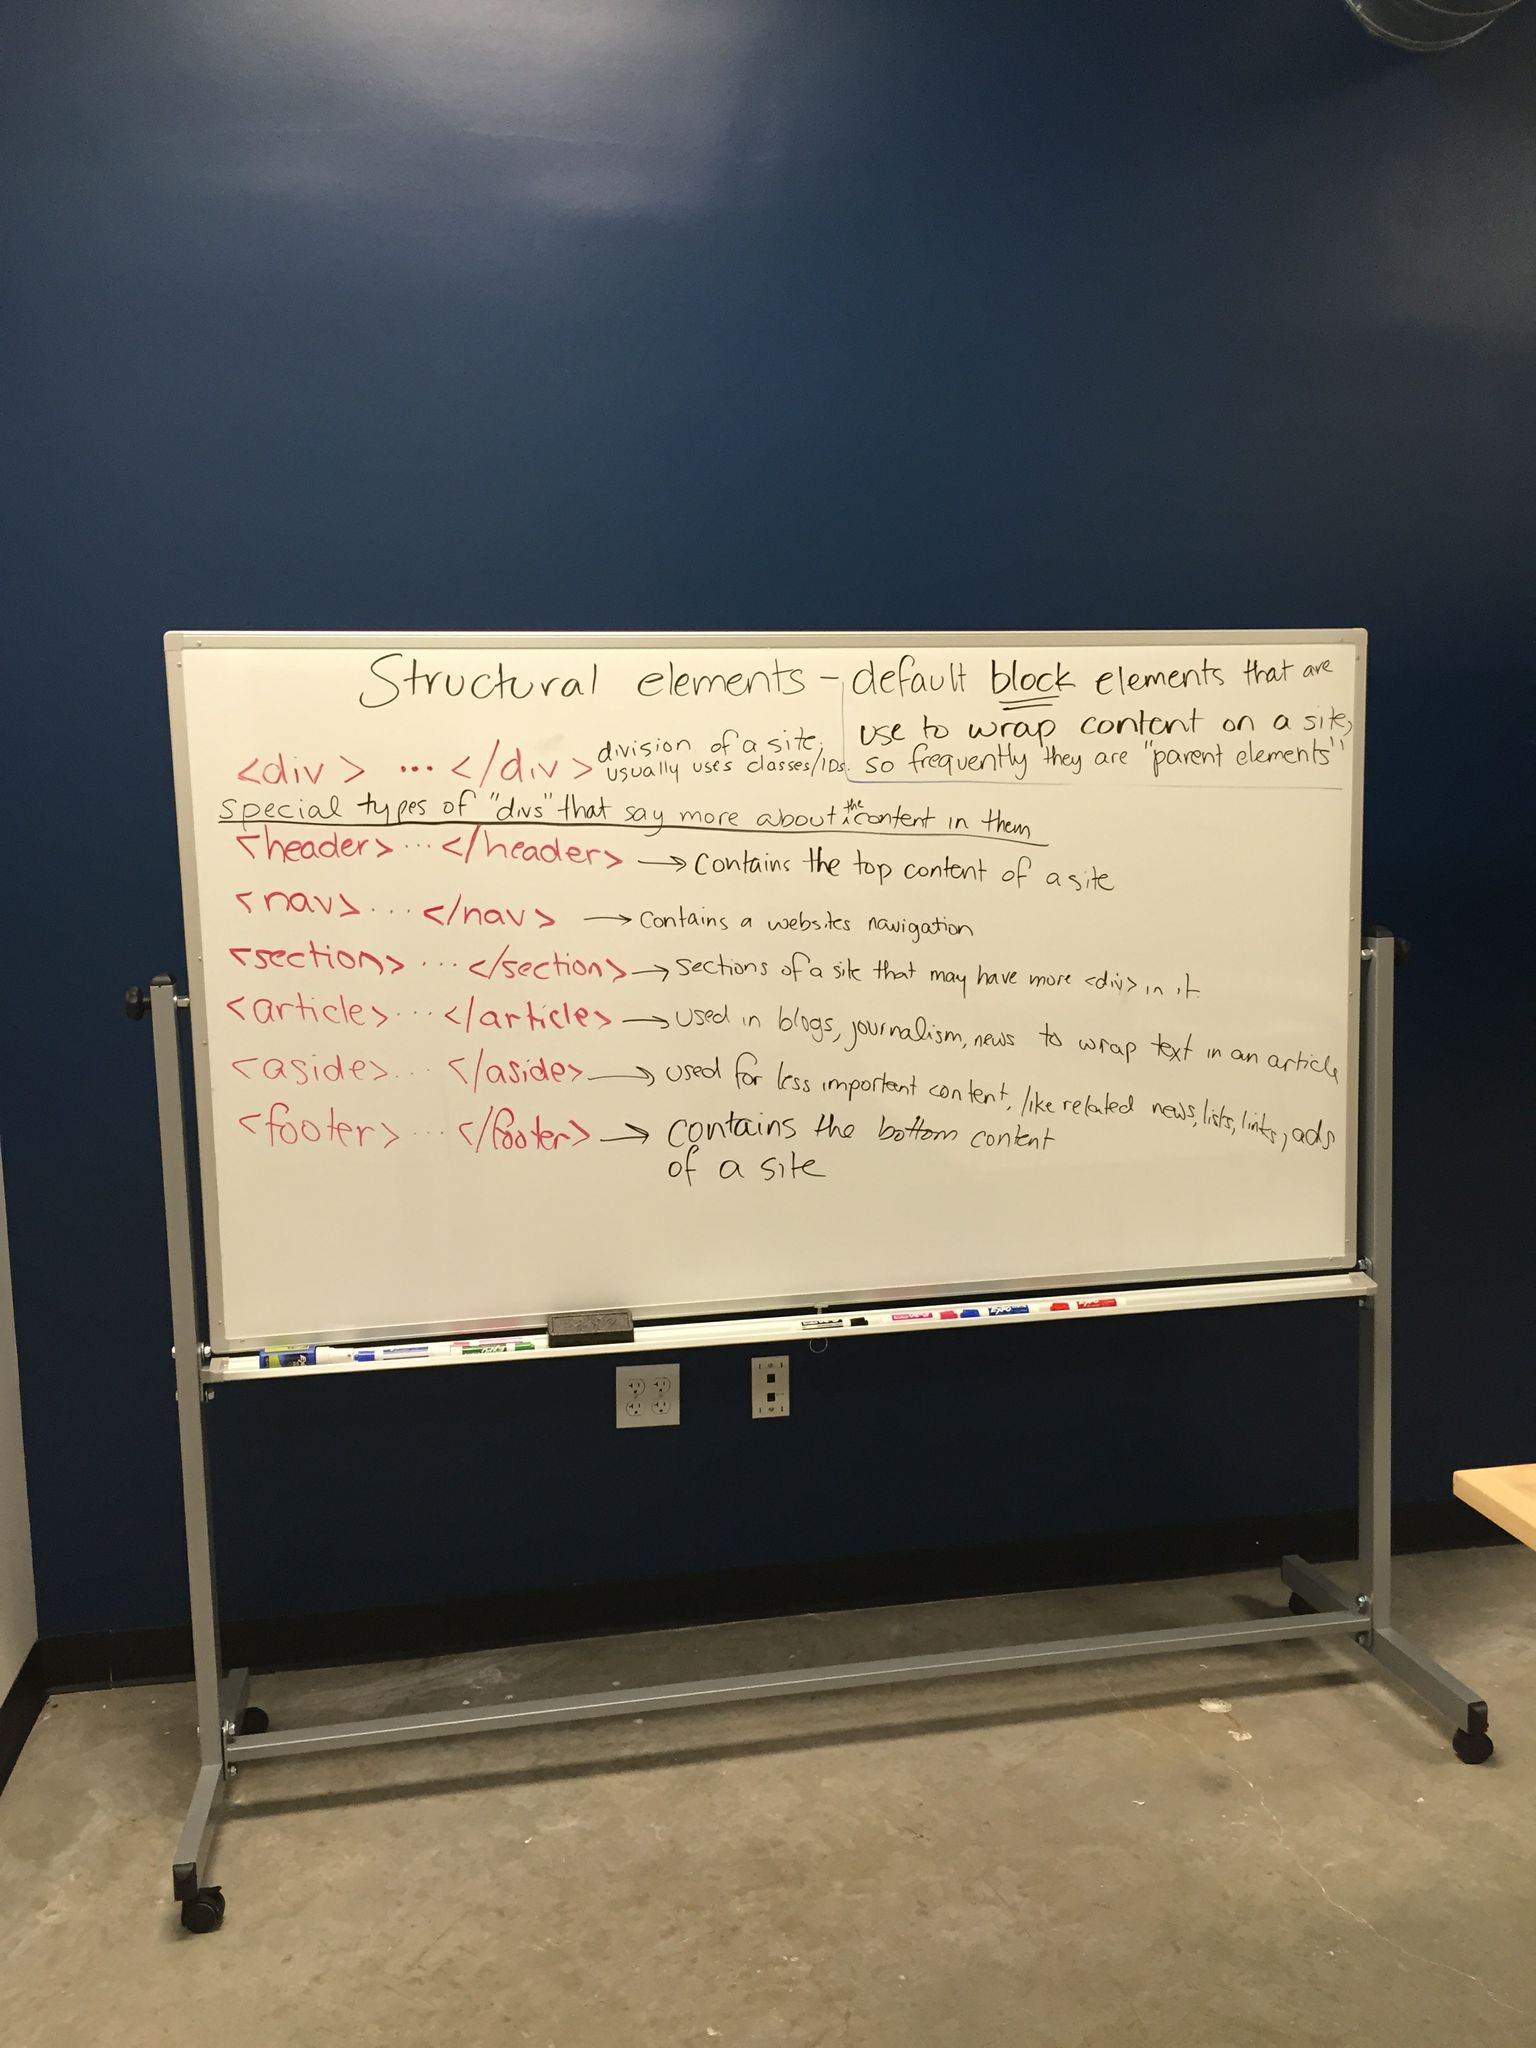 Structural elements - default block elements that are
use to wrap content on a site,
so frequently they are "parent elements"
<div> ... </div> division of a site,
usually uses classes/IDs.
special types of "divs" that say more about the content in them
<header> ... </header> → contains the top content of a site
<nav> ... </nav> → contains a websites navigation
<section> ... </section> → sections of a site that may have more <div> in it
<article> ... </article> → used in blogs, journalism, news to wrap text in an article
<aside> ... </aside> → used for less important content, like related news, lists, links, ads
<footer> ... </footer> → contains the bottom content
of a site